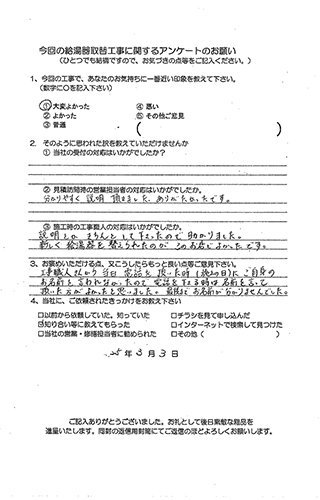 今回の給湯器取替工事に関するアンケートのお願い
(ひとつでも結構ですので、お気づきの点等をご記入ください。)
1、今回の工事で、あなたのお気持ちに一番近い印象を教えて下さい。
(数字に○を記入下さい)
①大変よかった ④悪い
②よかった ⑤その他ご意見
③普通 ( )
2. そのように思われた訳を教えていただけませんか
① 当社の受付の対応はいかがでしたか?
② 見積訪問時の営業担当者の対応はいかがでしたか。
分かりやすく説明頂きました。ありがたかったです。
③ 施工時の工事職人の対応はいかがでしたか。
説明とか きちんとして下さったので助かりました。
新しく給湯器を替えられたのが
よかったです。
3、お褒めいただける点、又こうしたらもっと良い点等ご意見下さい。
工事職人さんから当日電話を頂いた時
ご自身の
お名前を言われなかったので 電話を下さる時は名前を言って
頂いた方がよかったと思いました。
お名前が分かりませんでした。
4、当社に、ご依頼されたきっかけをお教え下さい
□以前から依頼していた、知っていた □チラシを見て申し込んだ
☑知り合い等に教えてもらった □インターネットで検索して見つけた
□当社の営業・修繕担当者に勧められた □その他 ( )
25年 3月 3日
ご記入ありがとうございました。お礼として後日素敵な粗品を
進呈いたします。同封の返信用封筒にてご返信のほどよろしくお願いします。